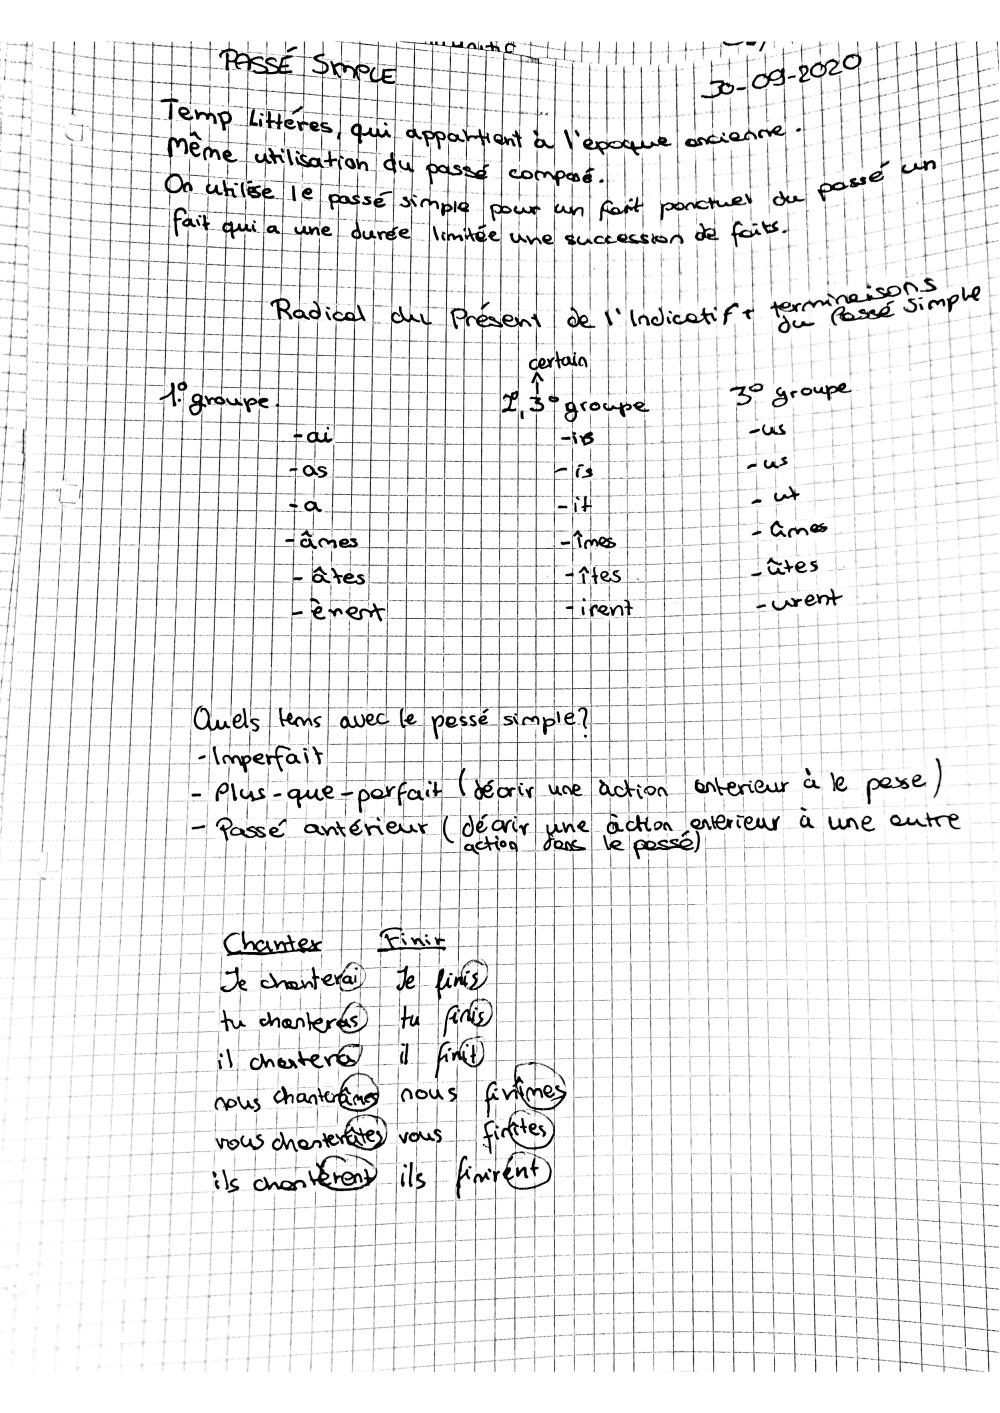 PASSÉ SIMPLE
30-09-2020
Temp Littéres, qui appartient à l'époque ancienne.
Même utilisation du passé composé.
On utilise le passé simple pour un fait ponctuel du passé un
fait qui a une durée limitée une succession de faits.
Radical du Présent de l'Indicatif + terminaisons
du Passé Simple
certain
↑
1º groupe.
2º, 3º groupe
3º groupe
-ai
-is
-us
-as
-is
-us
-a
-it
-ut
-âmes
-îmes
-ûmes
-âtes
-îtes
-ûtes
-èrent
-irent
-urent
Quels tems avec le passé simple?
-Imperfait
- Plus-que-parfait (décrir une action anterieur à le passe)
- Passé antérieur (décrir une action anterieur à une autre
action dans le passé)
Chanter Finir
Je chanterai Je finis
tu chanteras tu finis
il chantera il finit
nous chanterâmes nous finîmes
vous chanterâtes vous finîtes
ils chantèrent ils finirent